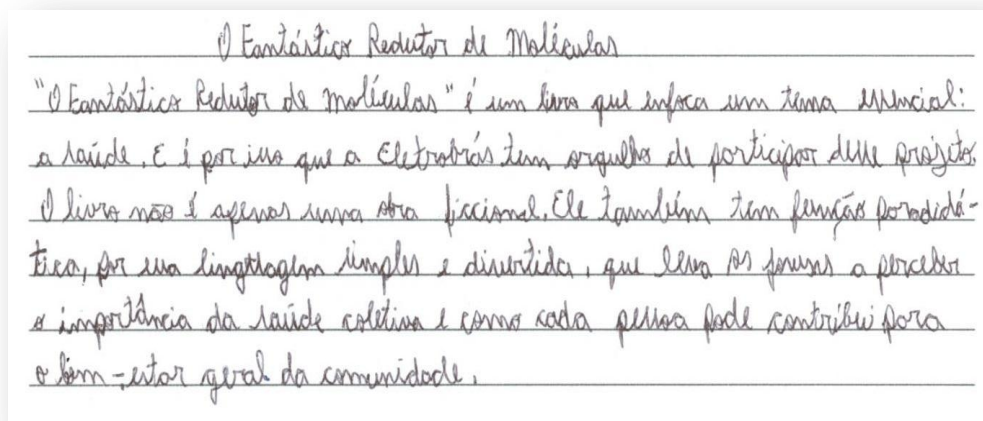 O Fantástico Redutor de Moléculas
"O Fantástico Redutor de Moléculas" é um livro que enfoca um tema essencial:
a saúde. E é por isso que a Eletrobrás tem orgulho de participar desse projeto.
O livro não é apenas uma obra ficcional. Ele também tem função paradidá-
tica, por sua linguagem simples e divertida, que leva os jovens a perceber
a importância da saúde coletiva e como cada pessoa pode contribui para
o bem-estar geral da comunidade.